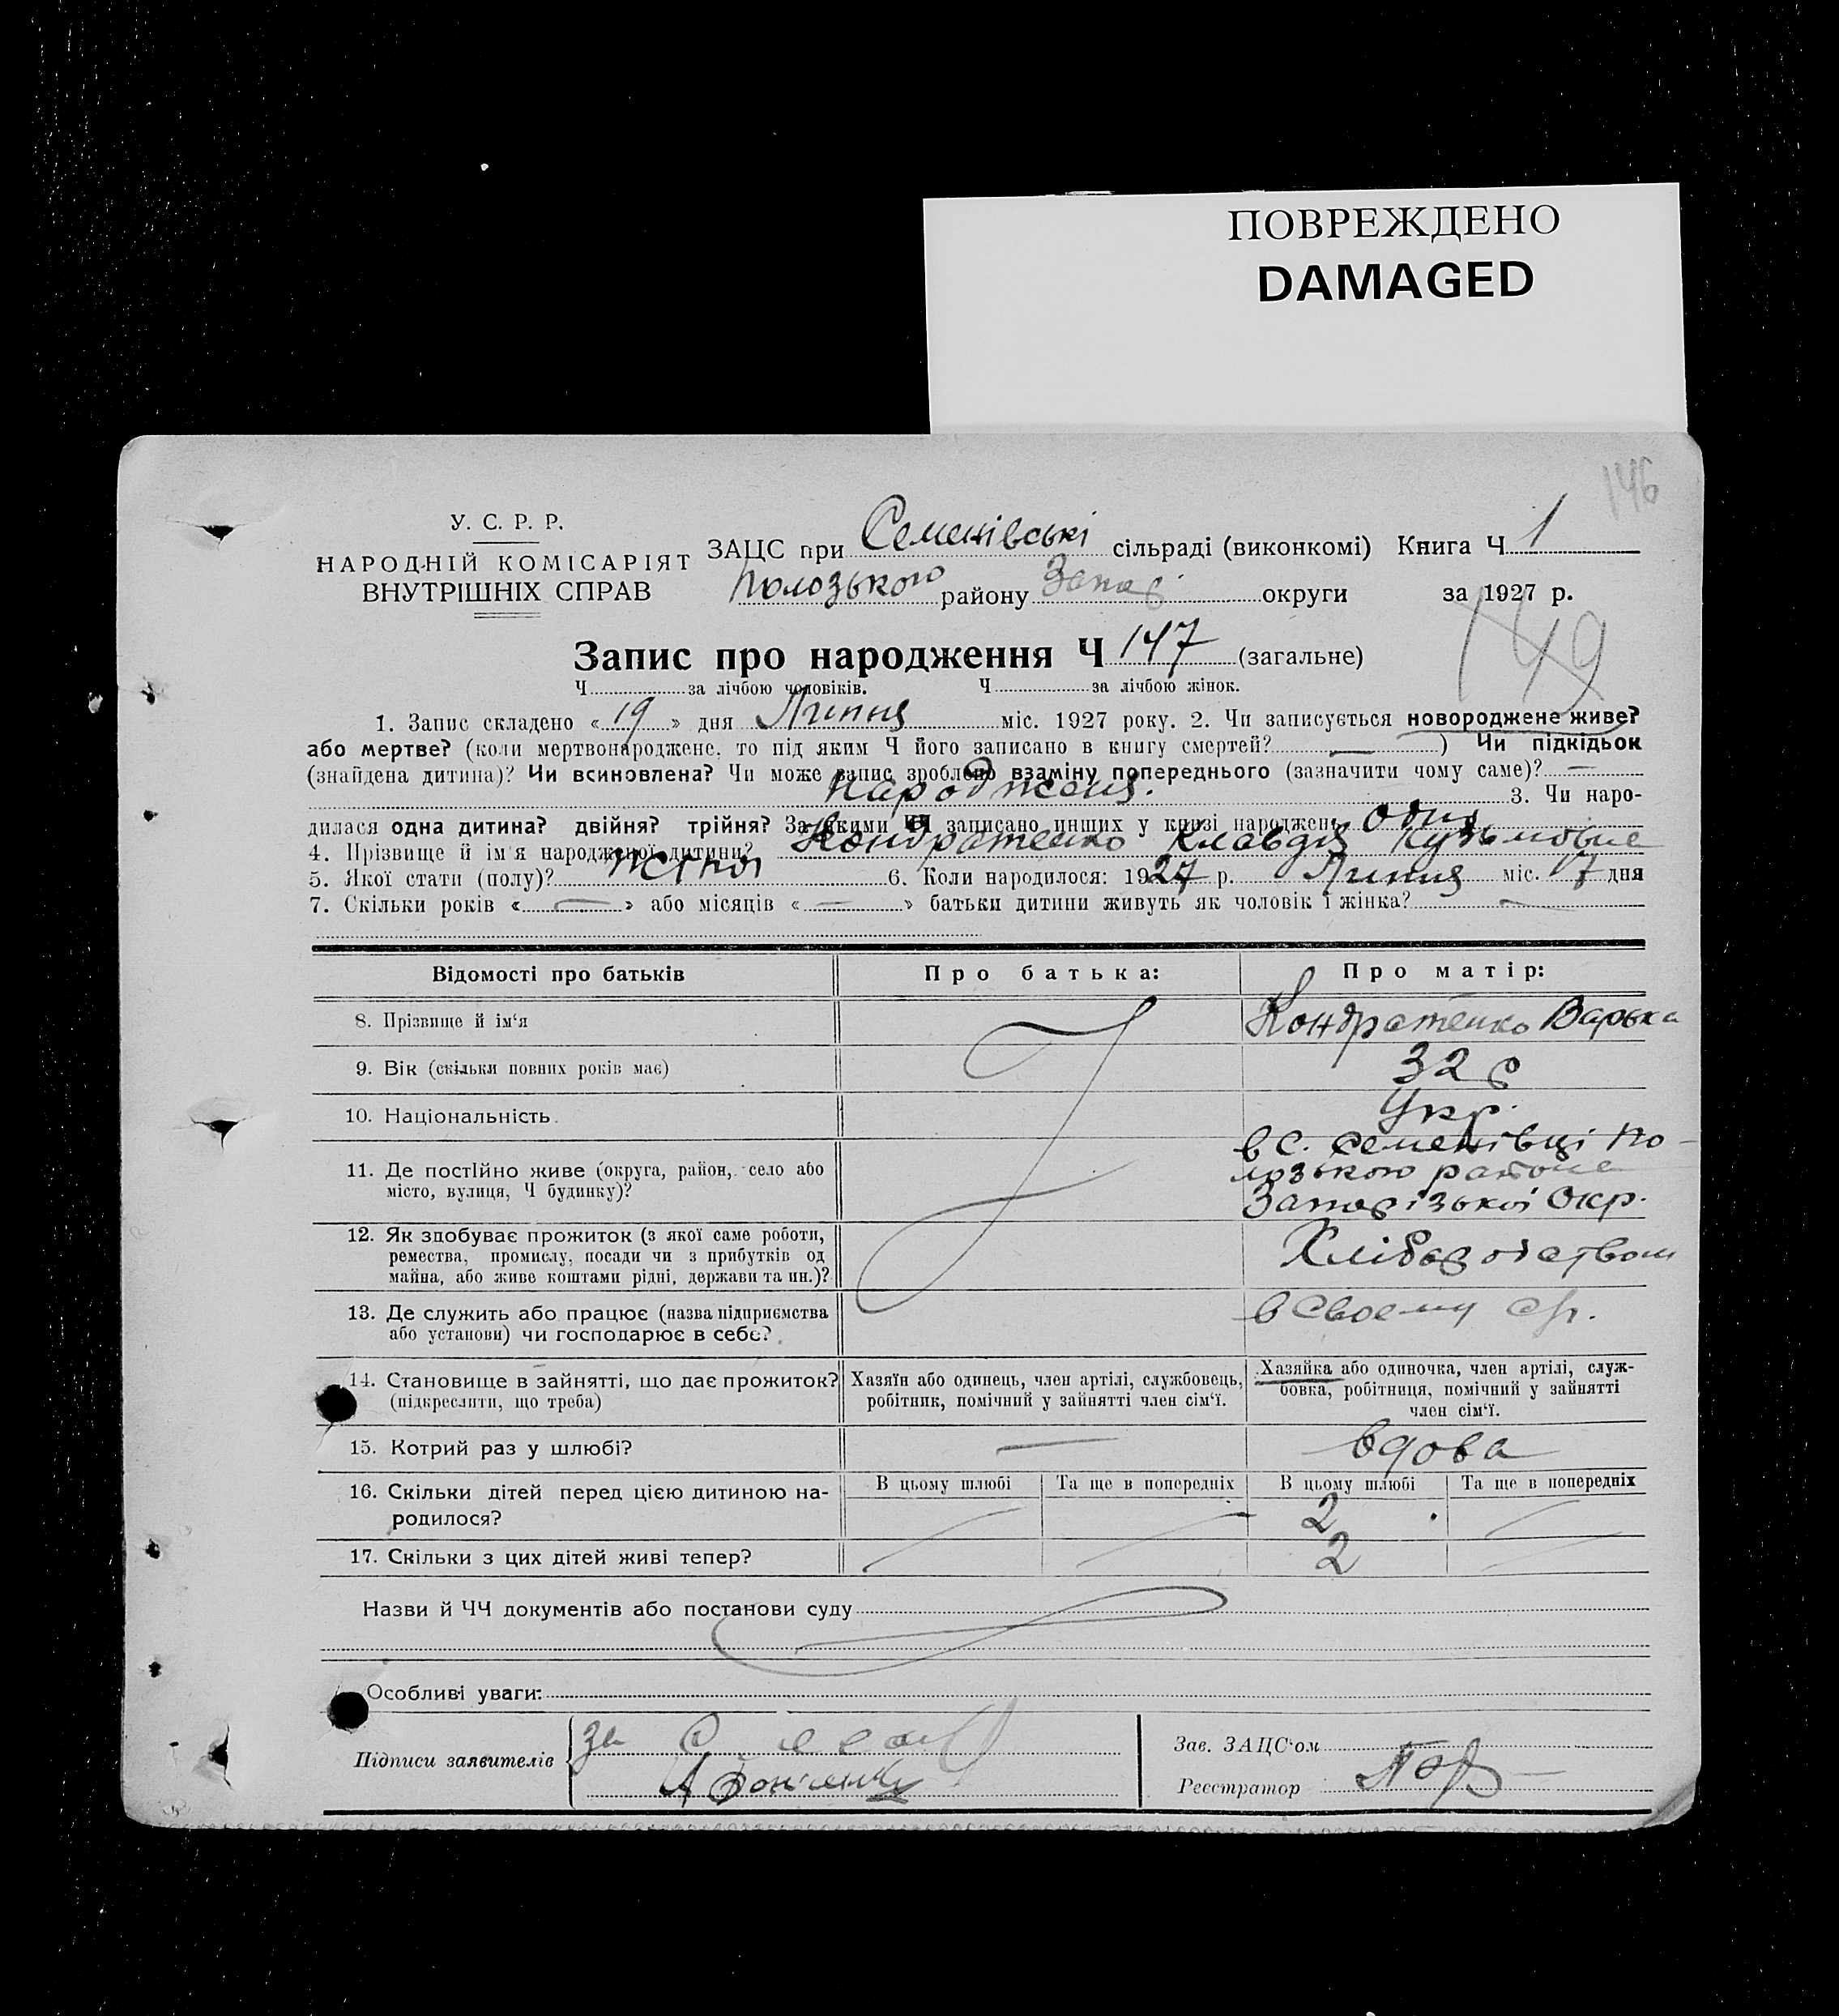 ПОВРЕЖДЕНО
DAMAGED
146
У. С. Р. Р.
НАРОДНІЙ КОМІСАРІЯТ
ВНУТРІШНІХ СПРАВ
ЗАЦС при Семенівські сільраді (виконкомі) Книга Ч 1
Полозького району Запор. округи за 1927 р.
149
Запис про народження Ч 147 (загальне)
Ч за лічбою чоловіків. Ч за лічбою жінок.
1. Запис складено « 19 » дня Липня міс. 1927 року. 2. Чи записується новороджене живе?
або мертве? (коли мертвонароджене, то під яким Ч його записано в книгу смертей? — ) Чи підкідьок
(знайдена дитина)? Чи всиновлена? Чи може запис зроблено взаміну попереднього (зазначити чому саме)? —
Народження. 3. Чи наро-
дилася одна дитина? двійня? трійня? За якими ЧЧ записано инших у книзі народжень одна
4. Прізвище й ім'я народженої дитини? Кондратенко Клавдія Кузьмовна
5. Якої стати (полу)? жіночої 6. Коли народилося: 1927 р. Липня міс. 7 дня
7. Скільки років « — » або місяців « — » батьки дитини живуть як чоловік і жінка? —
Відомості про батьків Про батька: Про матір:
8. Прізвище й ім'я Кондратенко Варька
9. Вік (скільки повних років має) 32 р
10. Національність. Укр.
11. Де постійно живе (округа, район, село або
місто, вулиця, Ч будинку)?
в с. Семенівці По-
лозького района
Запорізької Окр.
12. Як здобуває прожиток (з якої саме роботи,
ремества, промислу, посади чи з прибутків од
майна, або живе коштами рідні, держави та ин.)?
Хліборобством
13. Де служить або працює (назва підприємства
або установи) чи господарює в себе?
в своему
14. Становище в зайнятті, що дає прожиток?
(підкреслити, що треба)
Хазяїн або одинець, член артілі, службовець,
робітник, помічний у зайнятті член сім'ї.
Хазяйка або одиночка, член артілі, служ-
бовка, робітниця, помічний у зайнятті
член сім'ї.
15. Котрий раз у шлюбі? — вдова
В цьому шлюбі Та ще в попередніх В цьому шлюбі Та ще в попередніх
16. Скільки дітей перед цією дитиною на-
родилося? 2
17. Скільки з цих дітей живі тепер? 2
Назви й ЧЧ документів або постанови суду
Особливі уваги:
Підписи заявителів
за
Зав. ЗАЦС'ом
Реєстратор